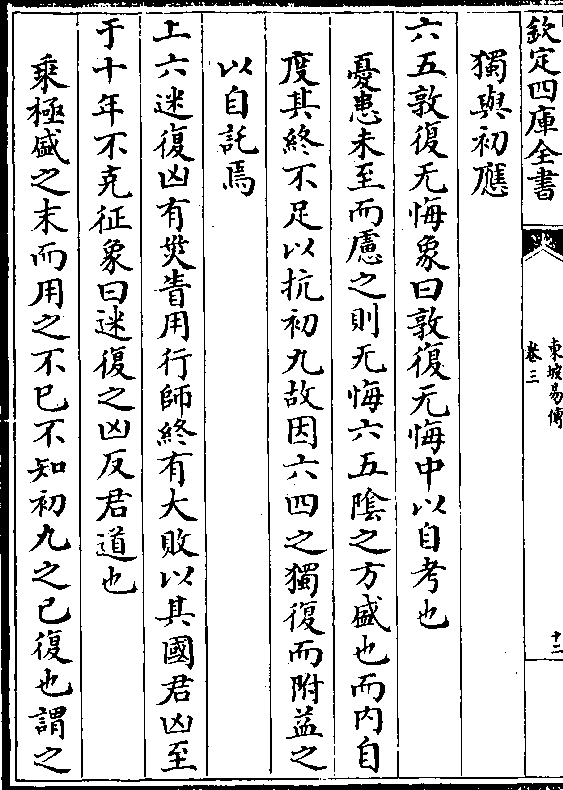 欽定四庫全書
東坡易傳
卷三
十二
獨與初應
六五敦復无悔象曰敦復无悔中以自考也
憂患未至而慮之則无悔六五陰之方盛也而内自
度其終不足以抗初九故因六四之獨復而附益之
以自託焉
上六迷復凶有災眚用行師終有大敗以其國君凶至
于十年不克征象曰迷復之凶反君道也
乘極盛之末而用之不已不知初九之已復也謂之